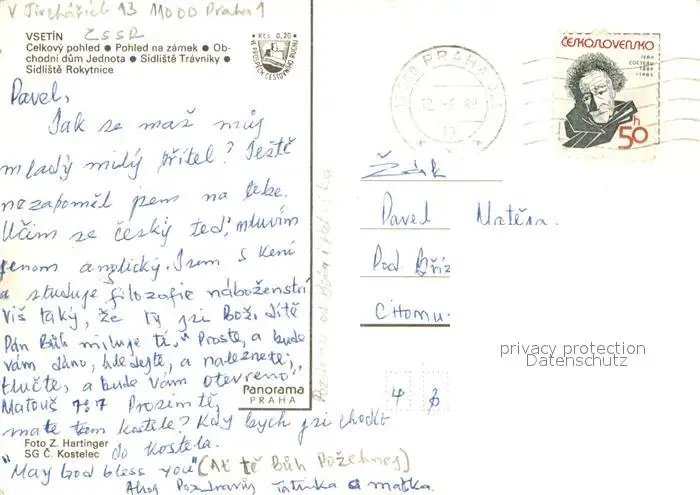 V Jirchářích 13 11000 Praha 1
ČSSR
VSETÍN
Celkový pohled ● Pohled na zámek ● Ob-
chodní dům Jednota ● Sídliště Trávníky ●
Sídliště Rokytnice
Kčs 0,20
VE PROSPĚCH CESTOVNÍHO RUCHU
Pavel,
Jak se maš můj
mladý milý přítel? Ještě
nezapoměl jsem na tebe.
Učím se český teď, mluvím
jenom anglický. Jsem s Kení
a studuje filozofie náboženství
Viš taký, že ty jsi Boží dítě
Pán Bůh miluje tě, "Proste, a bude
vám dáno, hledejte, a naleznete;
tlučte, a bude Vám otevřeno"
Matouš 7:7 Prosím tě,
máte tam kostele? Kdy bych jsi chodit
do kostela.
"May God bless you" (Ať tě Bůh Požehnej)
Ahoj Pozdravuj Tatínka a matka.
Panorama
PRAHA
Foto Z. Hartinger
SG Č. Kostelec
PRAHA
ČESKOSLOVENSKO
JEAN
COCTEAU
1889
1963
50h
Žák
Pavel Matěsa.
Pod Bříz
Chomu
privacy protection
Datenschutz
4 3